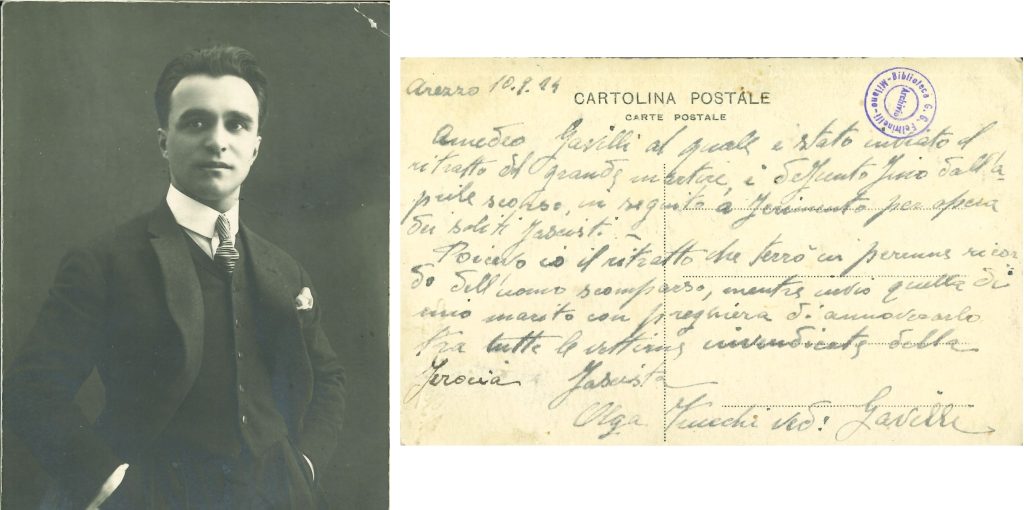 Arezzo 10.9.24
CARTOLINA POSTALE
CARTE POSTALE
Biblioteca G. G. Feltrinelli - Milano -
Archivio
Amedeo Gavilli al quale è stato inviato il
ritratto del grande martire, è defunto fino dall'a-
prile scorso, in seguito a ferimento per opera
dei soliti fascisti. -
Ricevo io il ritratto che terrò in perenne ricor
do dell'uomo scomparso, mentre invio quella di
mio marito con preghiera di annoverarlo
tra tutte le vittime invendicate della
ferocia fascista
Olga ved: Gavilli